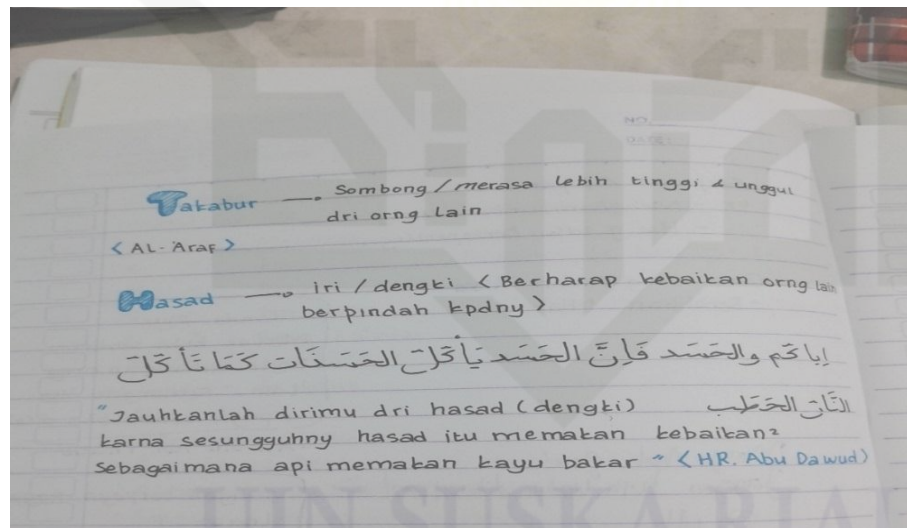 NO
DATE
Takabur → Sombong / merasa lebih tinggi & unggul
dri orng lain
< AL-Araf >
Hasad → iri / dengki < Berharap kebaikan orng lain
berpindah kpdny >
إياكم والحسد فإنّ الحسد يأكل الحسنات كما تأكل
النار الحطب
"Jauhkanlah dirimu dri hasad (dengki)
karna sesungguhny hasad itu memakan kebaikan²
sebagaimana api memakan kayu bakar" < HR. Abu Dawud)
UIN SUSKA RIAU